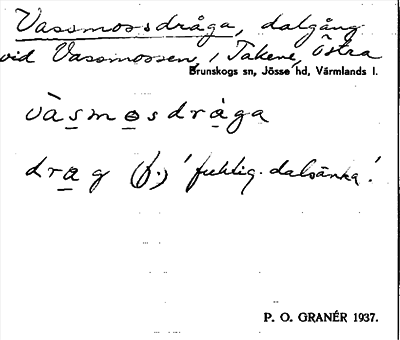 Vassmossdråga, dalgång
vid Vassmossen, i Takene, Östra
Brunskogs sn, Jösse hd, Värmlands l.
vàsmosdràga
drag (f.) 'fuktig dalsänka'.
P. O. GRANÉR 1937.